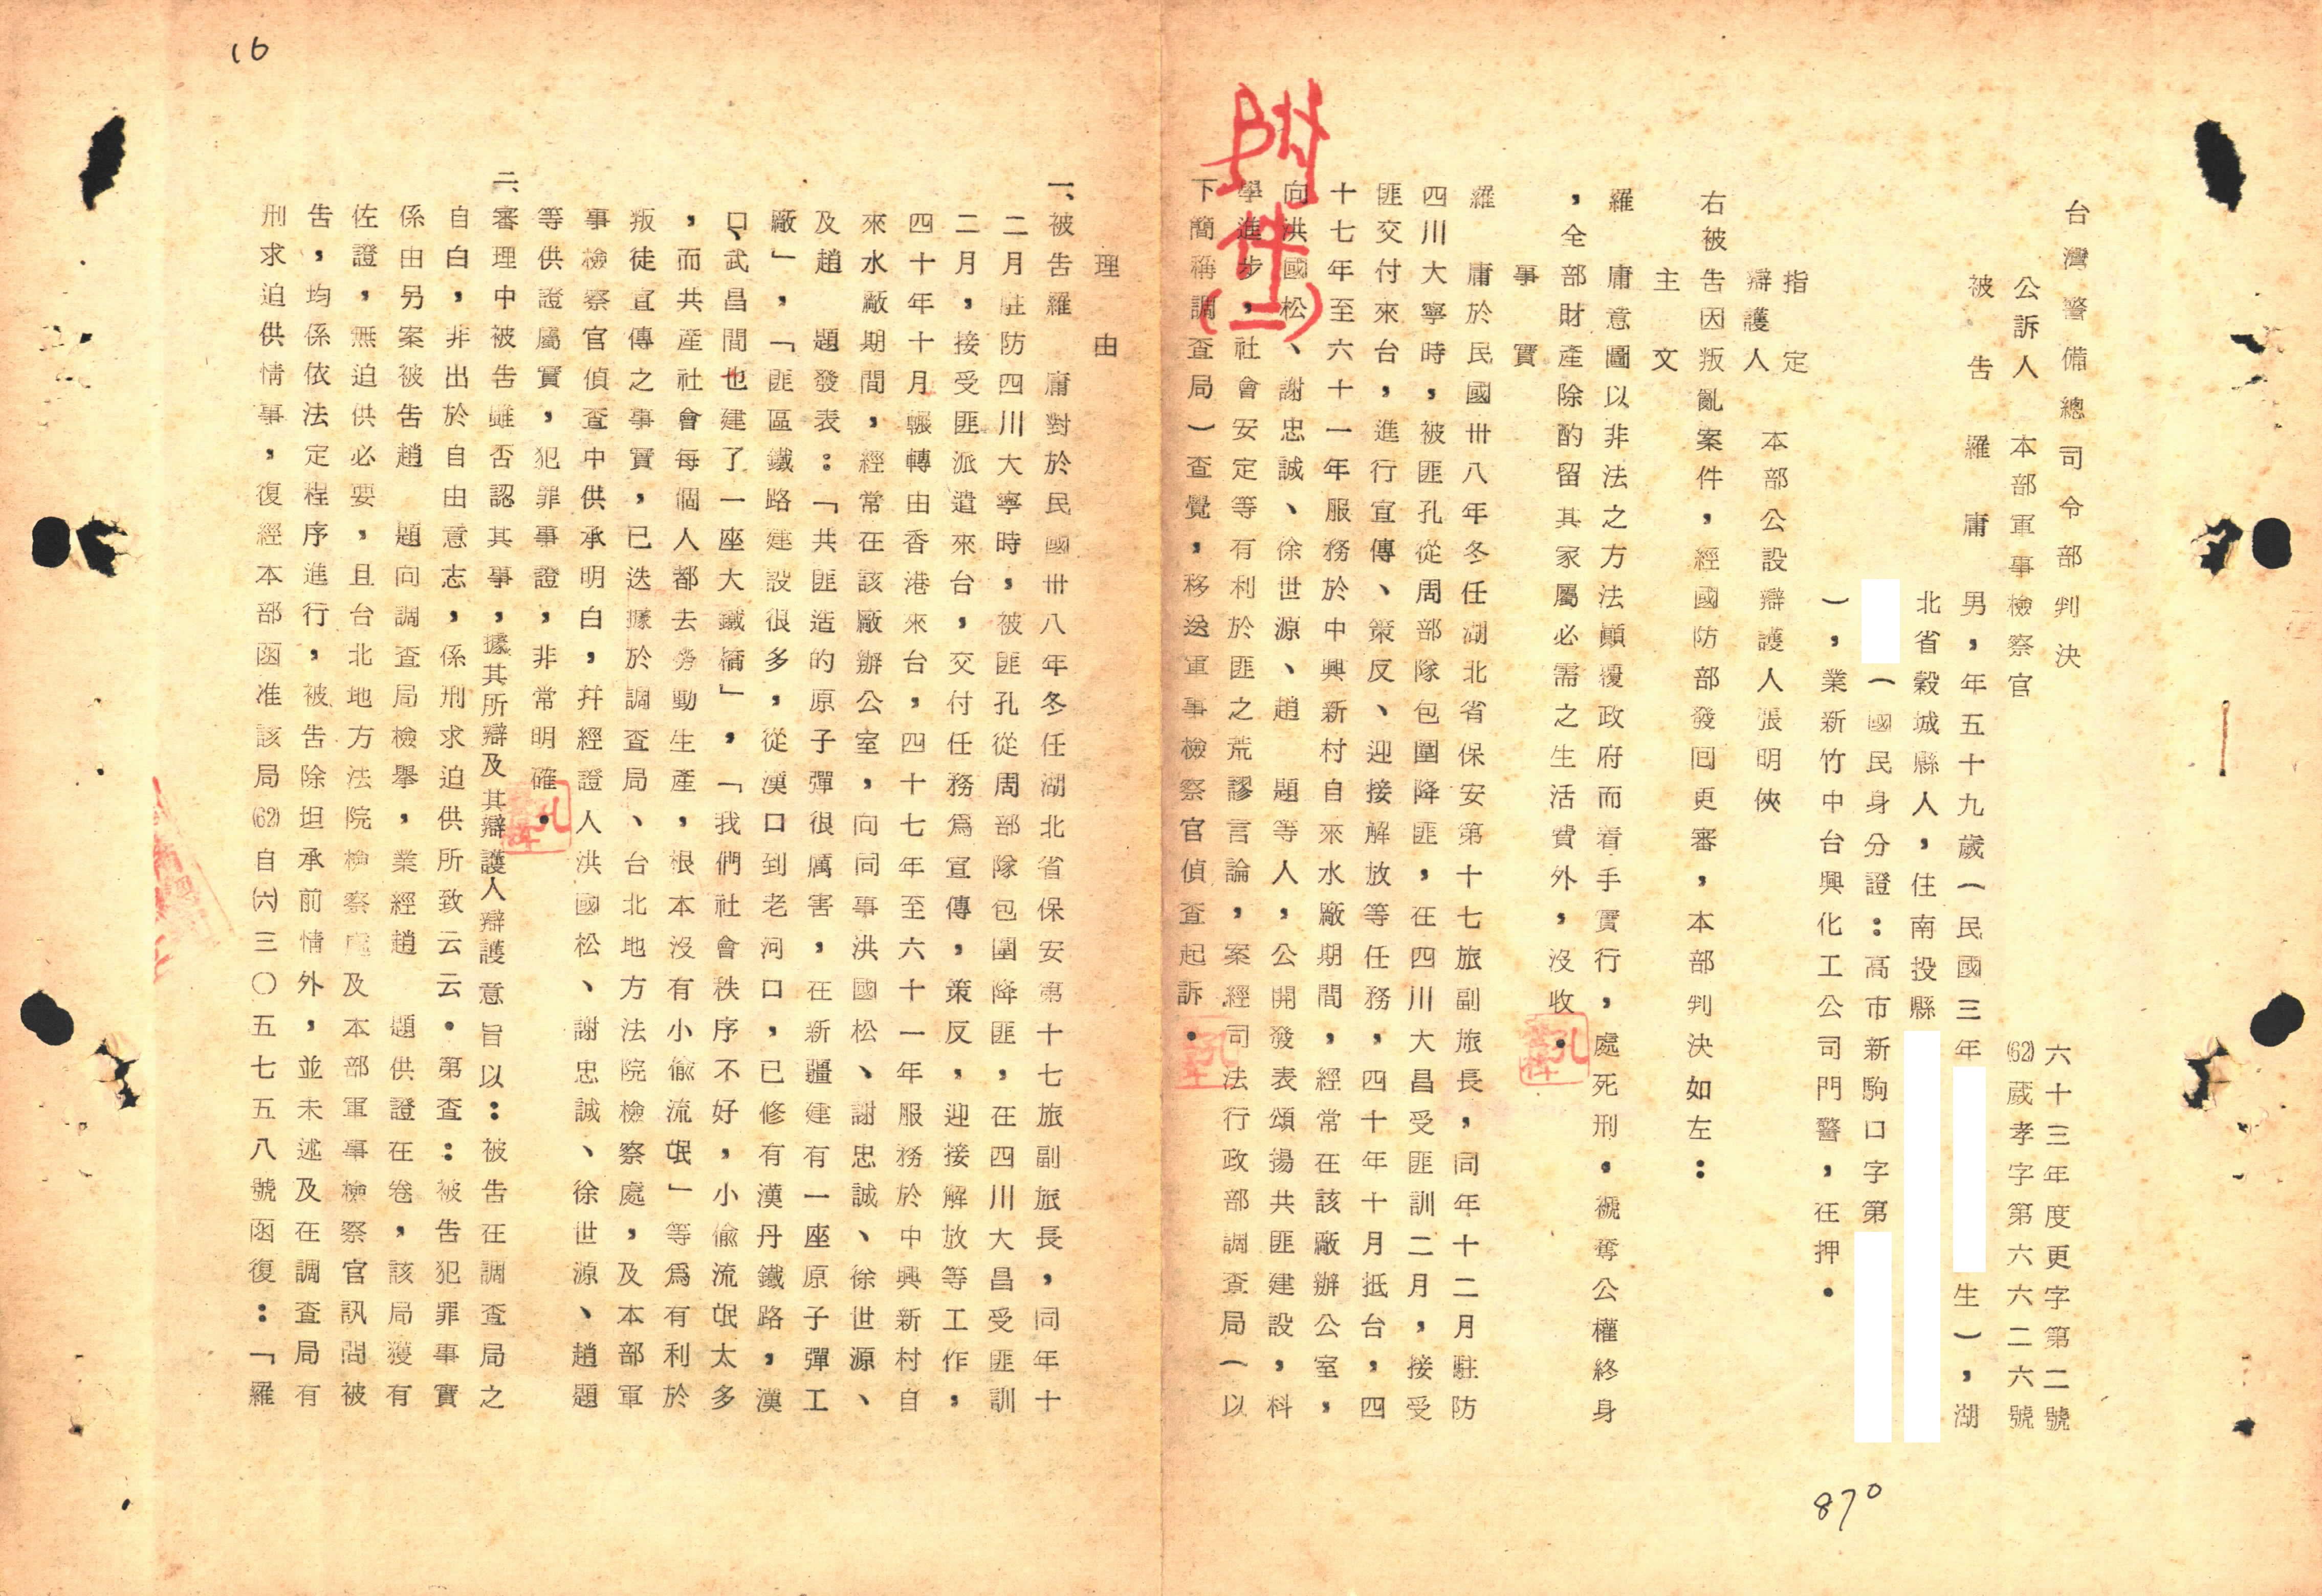 台灣警備總司令部判決
六十三年度更字第二號
(62)葳孝字第六六二六號
公訴人 本部軍事檢察官
被告 羅 庸 男,年五十九歲(民國三年
生),湖
北省穀城縣人,住南投縣
(國民身分證:高市新駒口字第
),業新竹中台興化工公司門警,在押。
指定
辯護人 本部公設辯護人張明俠
右被告因叛亂案件,經國防部發回更審,本部判決如左:
主文
羅 庸意圖以非法之方法顚覆政府而着手實行,處死刑。褫奪公權終身
,全部財產除酌留其家屬必需之生活費外,沒收。
事實
羅 庸於民國卅八年冬任湖北省保安第十七旅副旅長,同年十二月駐防
四川大寧時,被匪孔從周部隊包圍降匪,在四川大昌受匪訓二月,接受
匪交付來台,進行宣傳、策反、迎接解放等任務,四十年十月抵台,四
十七年至六十一年服務於中興新村自來水廠期間,經常在該廠辦公室,
向洪國松、謝忠誠、徐世源、趙 題等人,公開發表頌揚共匪建設,科
學進步,社會安定等有利於匪之荒謬言論,案經司法行政部調查局(以
下簡稱調查局)查覺,移送軍事檢察官偵查起訴。
附件(二)
理由
一、被告羅 庸對於民國卅八年冬任湖北省保安第十七旅副旅長,同年十
二月駐防四川大寧時,被匪孔從周部隊包圍降匪,在四川大昌受匪訓
二月,接受匪派遣來台,交付任務爲宣傳,策反,迎接解放等工作,
四十年十月輾轉由香港來台,四十七年至六十一年服務於中興新村自
來水廠期間,經常在該廠辦公室,向同事洪國松、謝忠誠、徐世源、
及趙 題發表:「共匪造的原子彈很厲害,在新疆建有一座原子彈工
廠」,「匪區鐵路建設很多,從漢口到老河口,已修有漢丹鐵路,漢
口、武昌間也建了一座大鐵橋」,「我們社會秩序不好,小偸流氓太多
,而共產社會每個人都去勞動生產,根本沒有小偸流氓」等爲有利於
叛徒宣傳之事實,已迭據於調查局、台北地方法院檢察處,及本部軍
事檢察官偵查中供承明白,幷經證人洪國松、謝忠誠、徐世源、趙題
等供證屬實,犯罪事證,非常明確。
二、審理中被告雖否認其事,據其所辯及其辯護人辯護意旨以:被告在調查局之
自白,非出於自由意志,係刑求迫供所致云云。第查:被告犯罪事實
係由另案被告趙 題向調查局檢舉,業經趙 題供證在卷,該局獲有
佐證,無迫供必要,且台北地方法院檢察處及本部軍事檢察官訊問被
告,均係依法定程序進行,被告除坦承前情外,並未述及在調查局有
刑求迫供情事,復經本部函准該局(62)自(六)三〇五七五八號函復:「羅
16
870